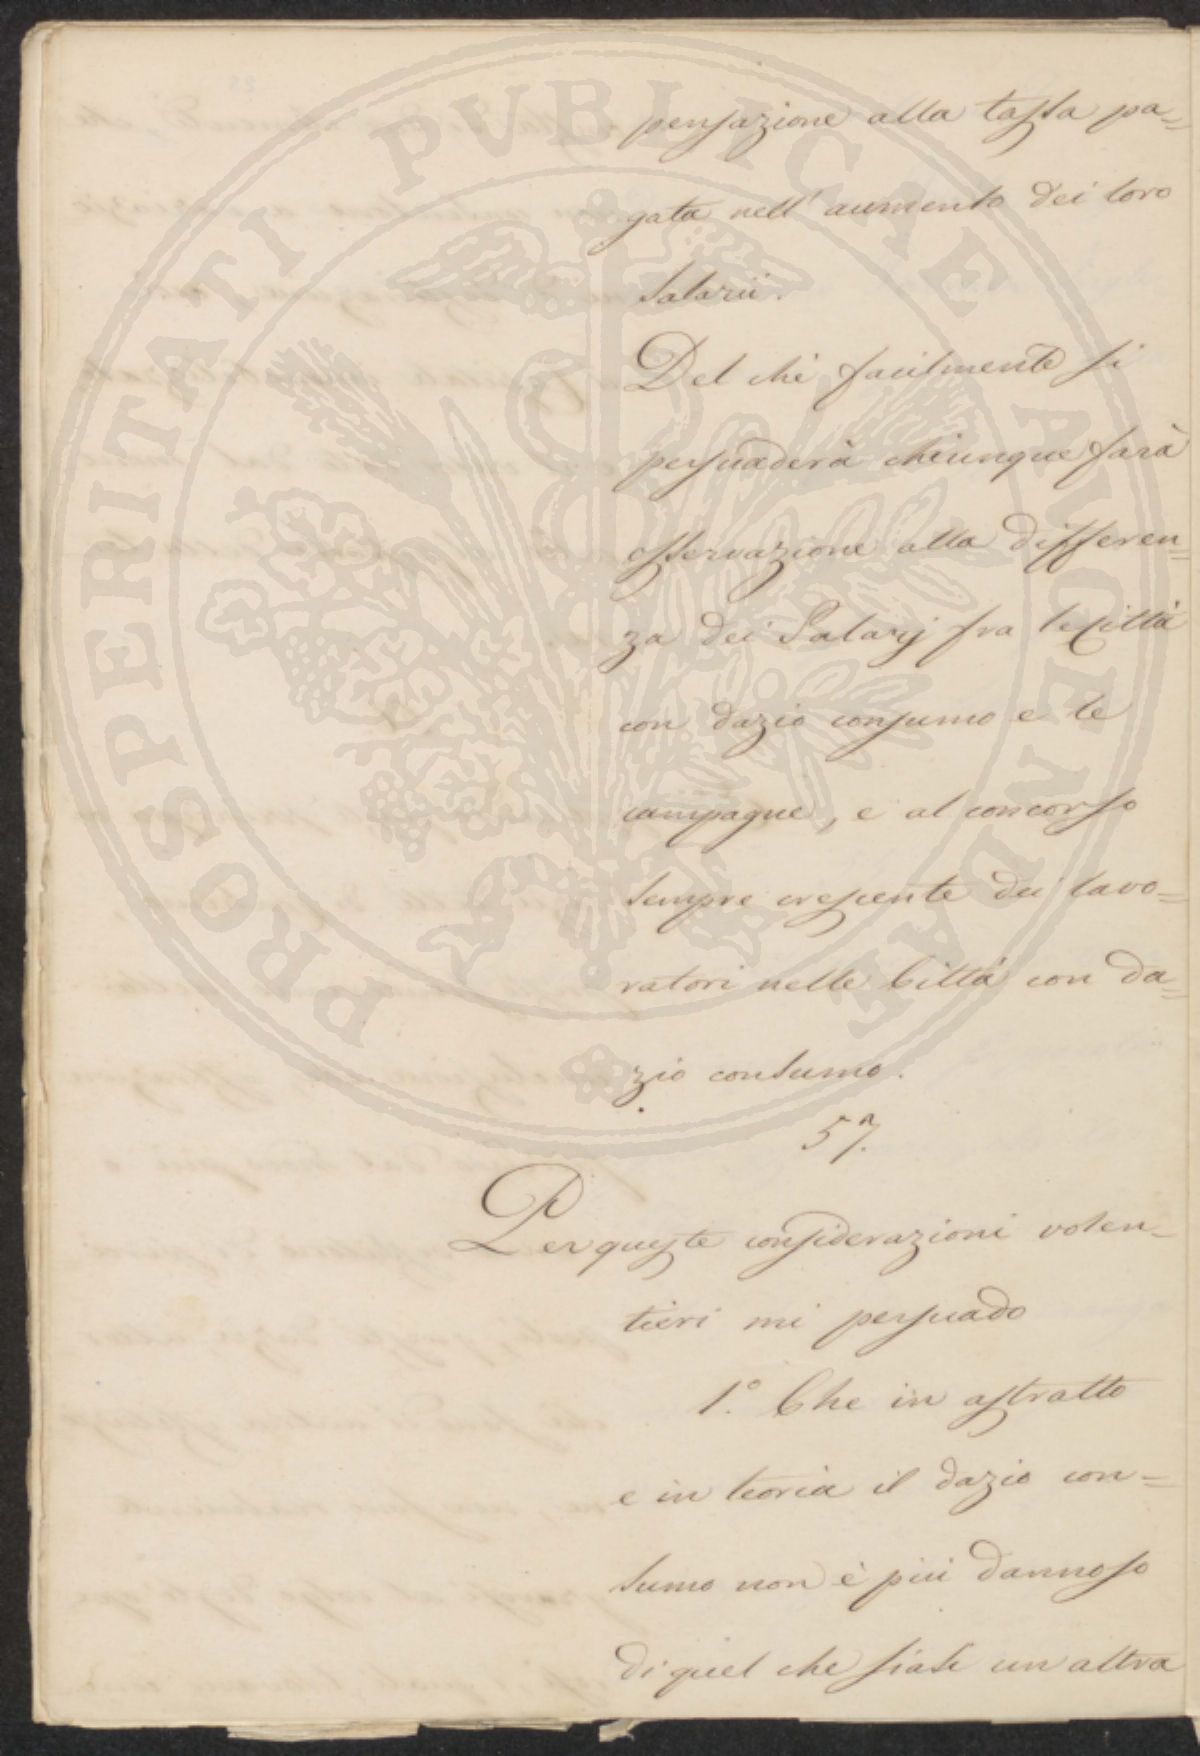 PROSPERITATI PVBLICAE AVGENDAE
pensazione alla tassa pa=
gata nell' aumento dei loro
salarii.
Del chè facilmente si
persuaderà chiunque farà
osservazione alla differen=
za dei Salarj fra le Città
con dazio consumo e le
campagne, e al concorso
sempre crescente dei lavo=
ratori nelle Città con da=
zio consumo.
57.
Per queste considerazioni volen=
tieri mi persuado
1.° Che in astratto
e in teoria il dazio con=
sumo non è più dannoso
di quel che siasi un altra